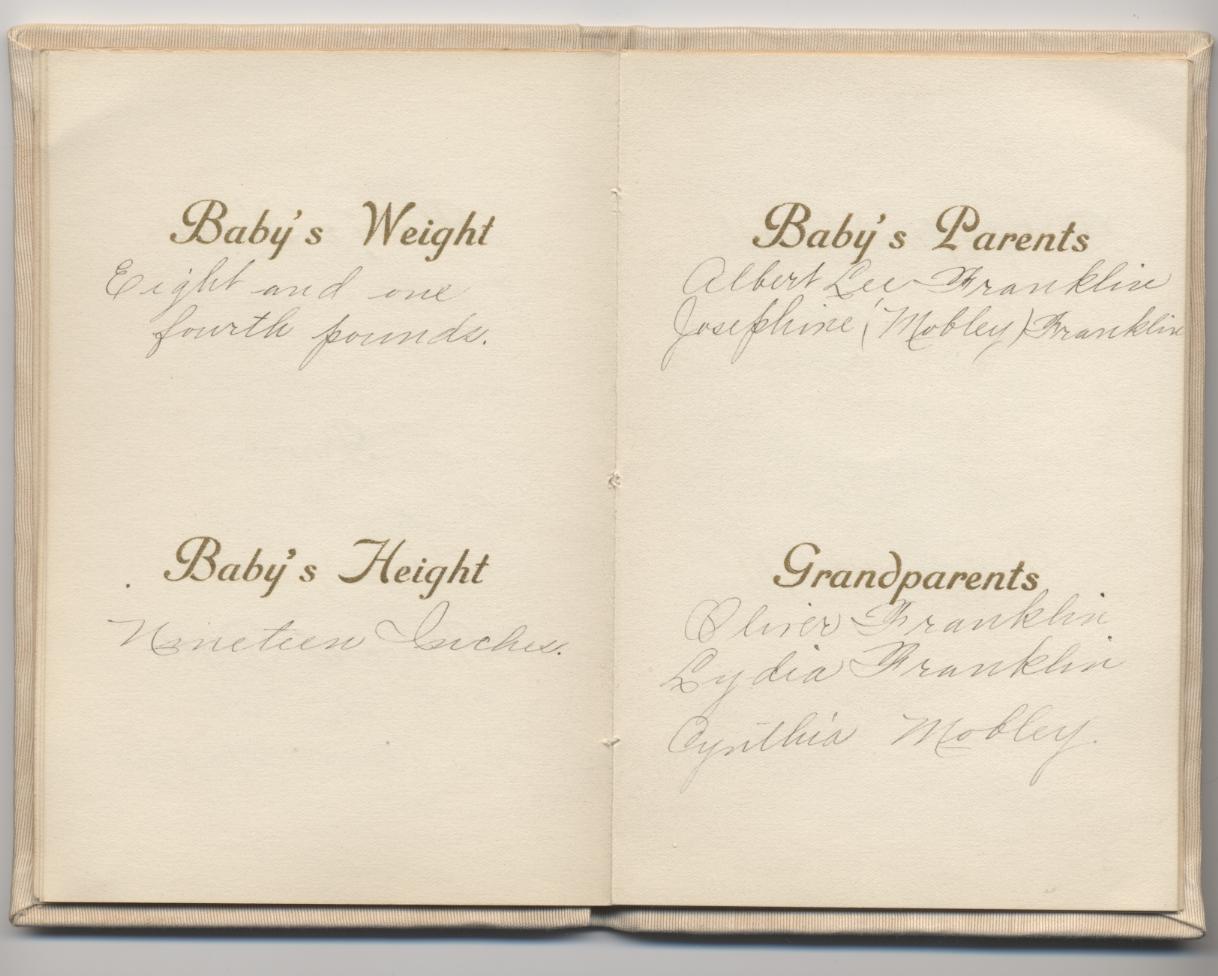 Baby's Weight
Eight and one
fourth pounds.
Baby's Height
Nineteen Inches.
Baby's Parents
Albert Lee Franklin
Josephine (Mobley) Franklin
Grandparents
Oliver Franklin
Lydia Franklin
Cynthia Mobley.